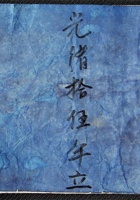 光緒拾伍年立